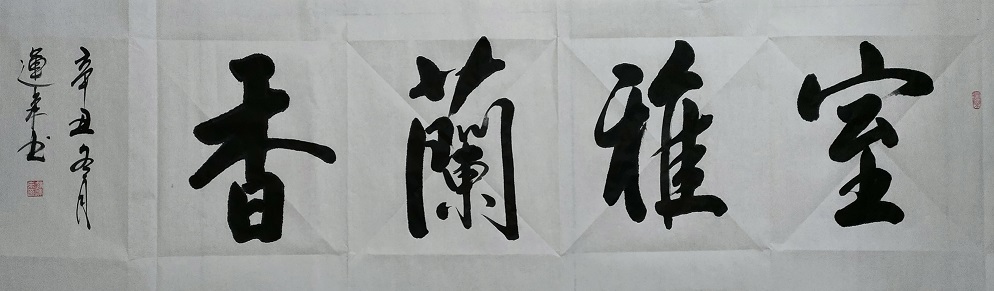 室雅蘭香
辛丑冬月
運来书